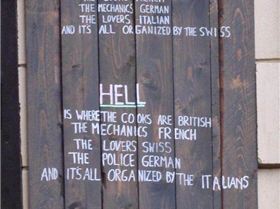 THE MECHANICS GERMAN
THE LOVERS ITALIAN
AND ITS ALL ORGANIZED BY THE SWISS
HELL
IS WHERE THE COOKS ARE BRITISH
THE MECHANICS FRENCH
THE LOVERS SWISS
THE POLICE GERMAN
AND IT'S ALL ORGANIZED BY THE ITALIANS